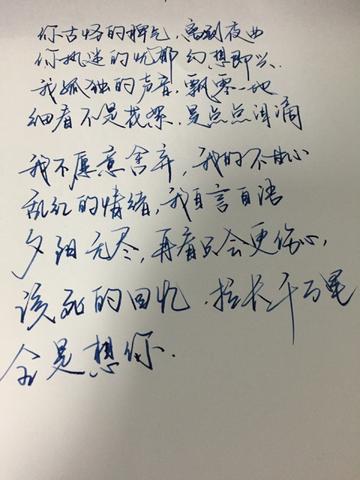 你古怪的脾气,离别夜曲
你执迷的忧郁 幻想即兴.
我孤独的声音,飘零一地
细看不是花絮,是点点泪滴
我不愿意舍弃,我的不甘心
乱红的情绪,我自言自语
夕阳无尽,再看只会更伤心,
该死的回忆.拉长千万里
全是想你.